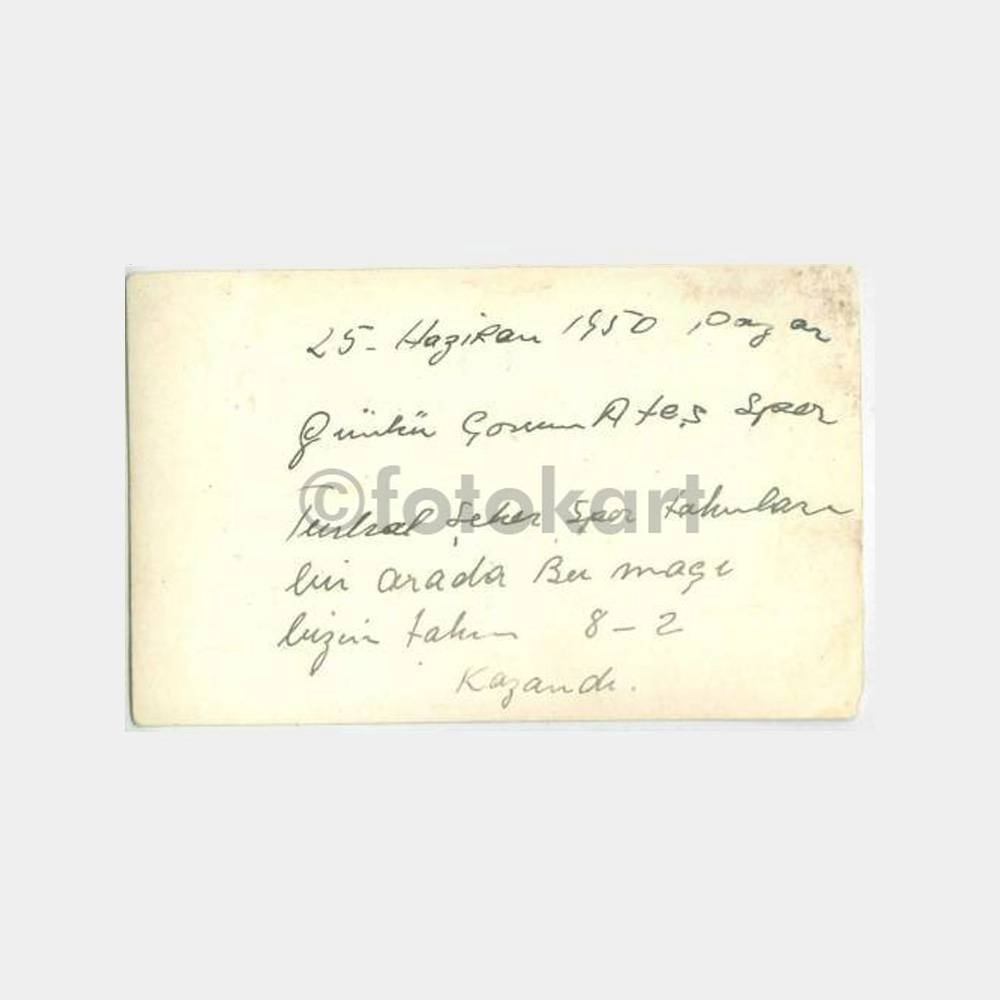 25- Haziran 1950 Pazar
Günkü Çorum Ateş Spor
©fotokart
Turhal Şeker Spor takımları
bir arada Bu maçı
bizim takım 8-2
Kazandı.